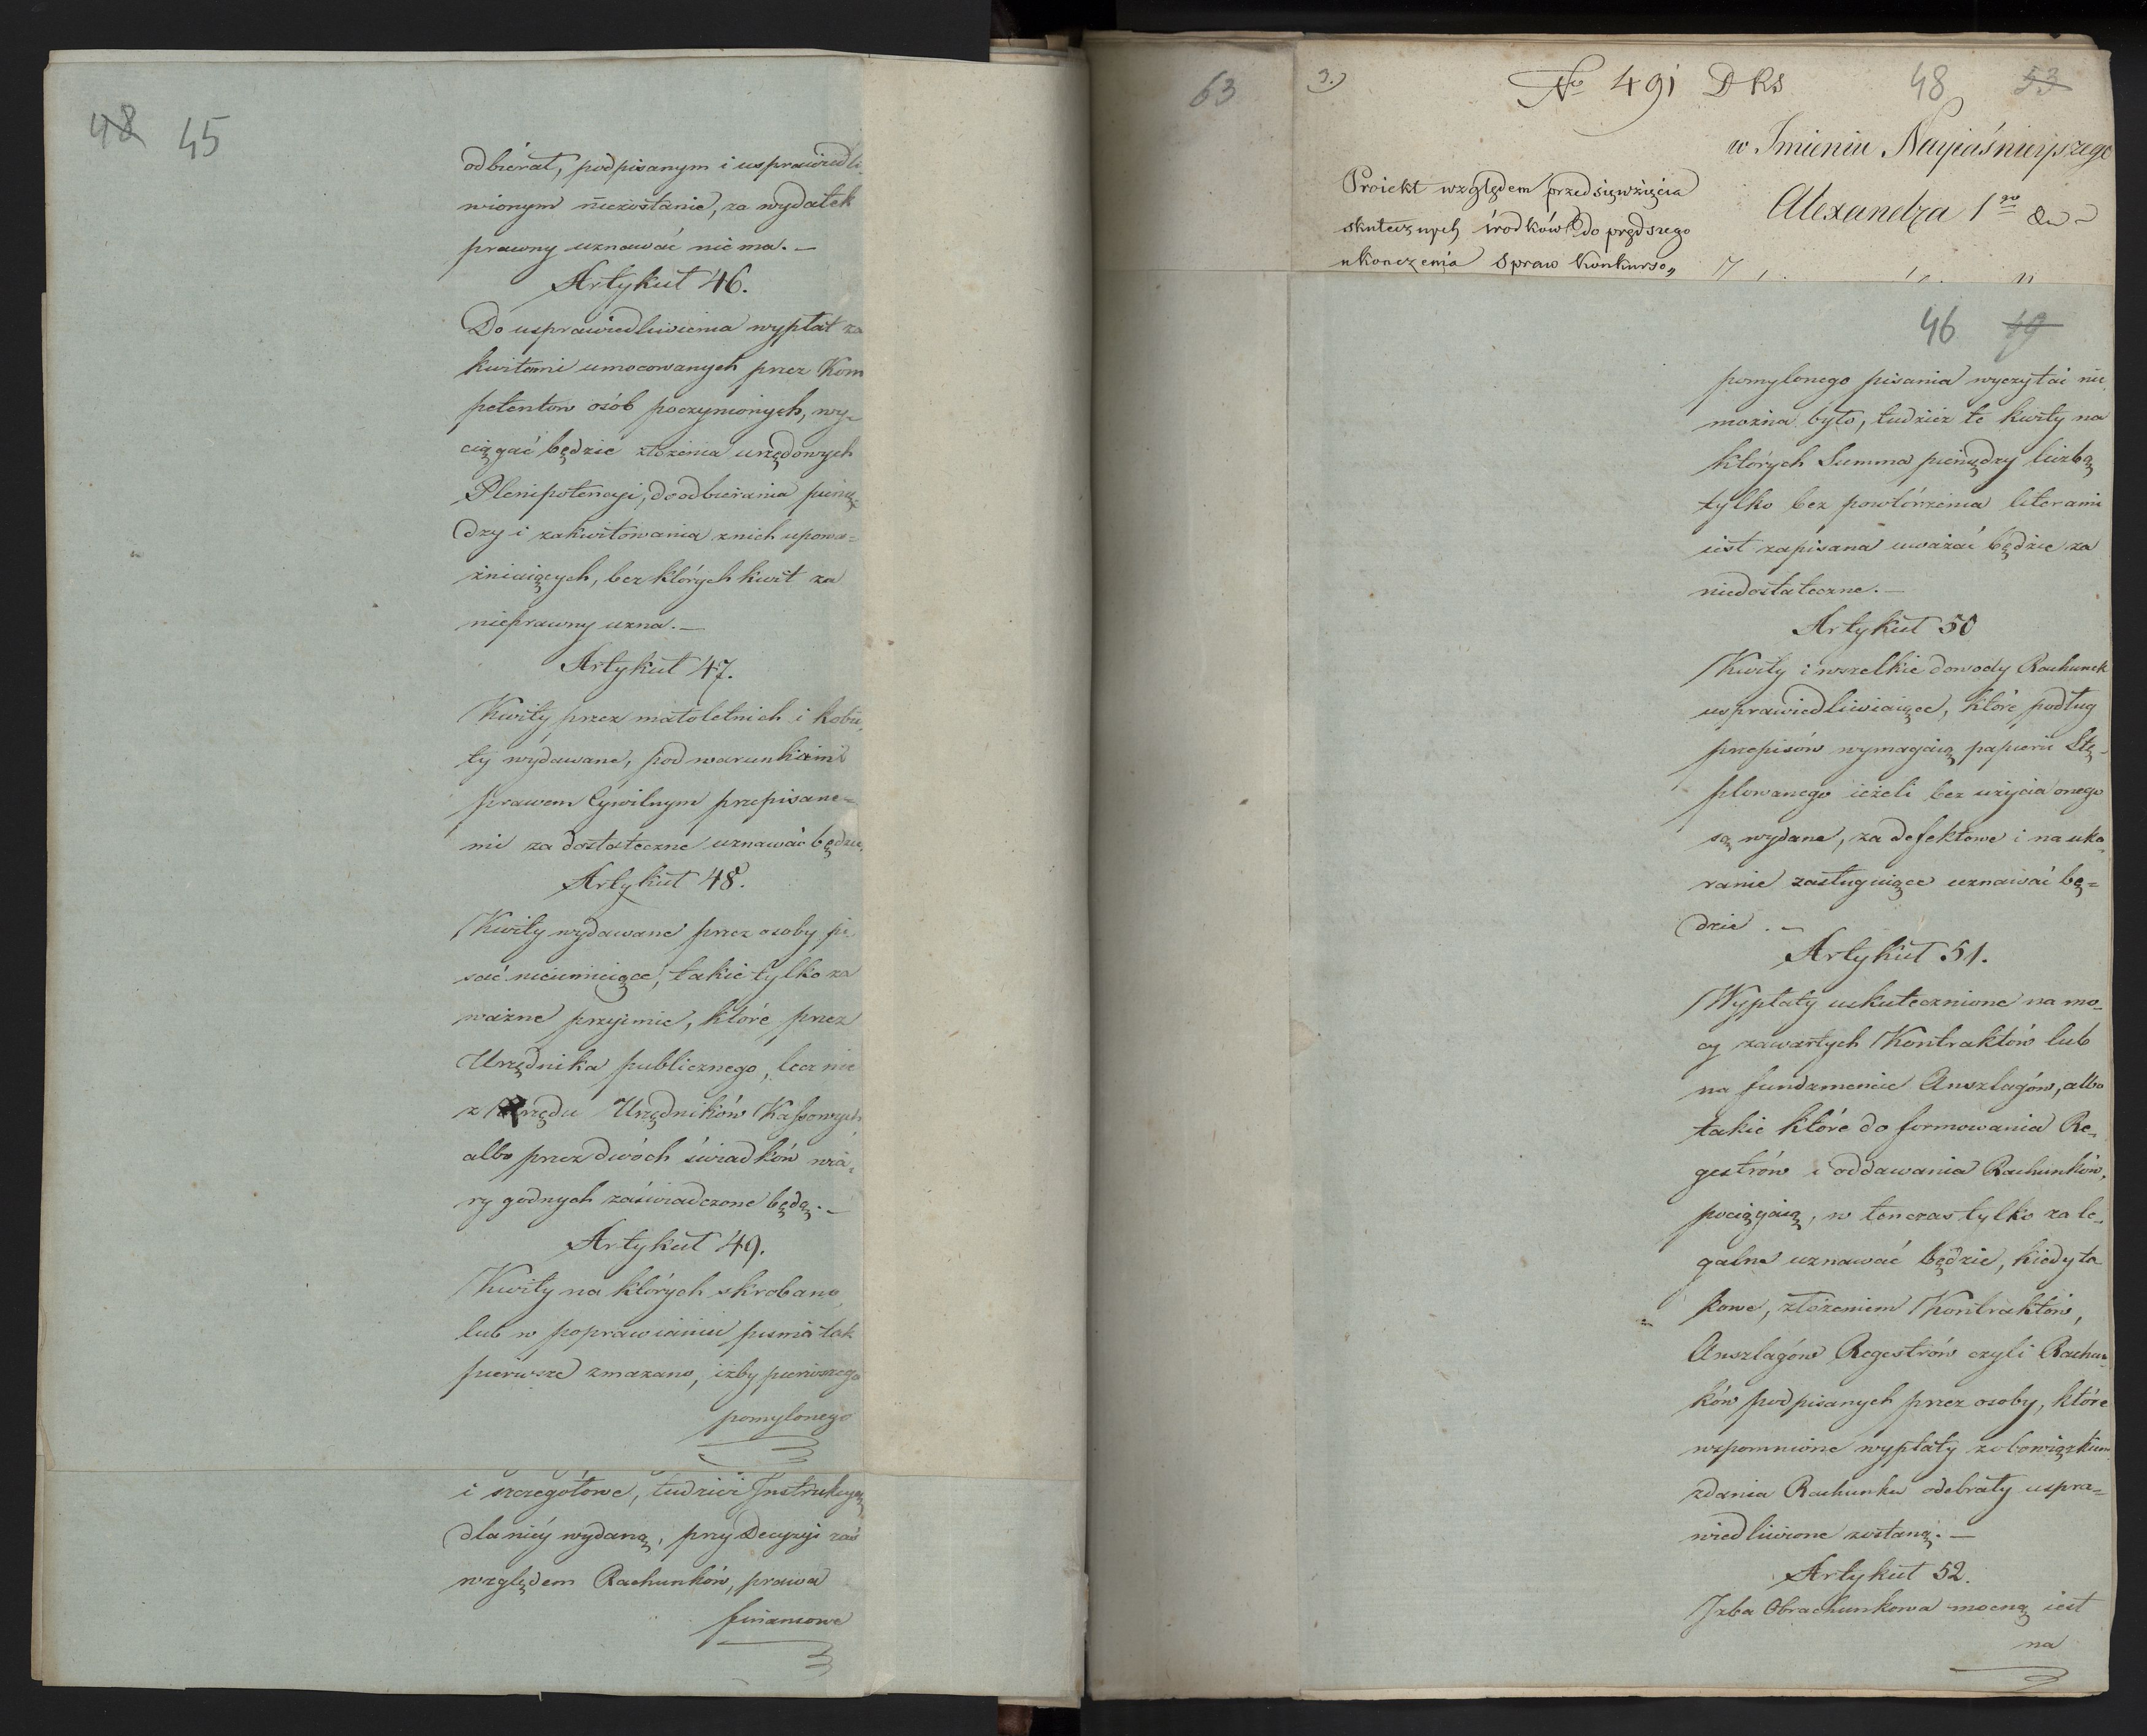 48 45
odbierał, podpisanym i usprawiedli-
wionym niezostanie, za wydatek
prawny uznawać nie ma. —
Artykuł 46.
Do usprawiedliwienia wypłat za
kwitami umocowanych przez Kom
petentow osób poczynionych, wy-
ciągać będzie złożenia urzędowych
Plenipotencyi, do odbierania pienię-
dzy i zakwitowania z nich upowa=
żniaiących, bez których kwit za
nieprawny uzna. —
Artykuł 47.
Kwity przez małoletnich i kobie,
ty wydawane, pod warunkami
prawem Cywilnym przepisane=
mi za dostateczne uznawać będzie,
Artykuł 48.
Kwity wydawane przez osoby pi
sać nieumieiące, takie tylko za
ważne przyimie, które przez
Urzędnika publicznego, lecz nie
z Rzędu Urzędników Kassowych
albo przez dwóch świadków wia-
ry godnych zaświadczone będą. —
Artykuł 49.
Kwity na których skrobano,
lub w poprawianiu pisma tak
pierwsze zmazano, iżby pierwszego
pomylonego
i szczegółowe, tudzież Instrukcyą
dla niéy wydaną, przy Decyzyi zaś
względem Rachunków, prawa
finansowe
63
3.) No 491 DKS 48 53
w Imieniu Nayiaśnieyszego
Alexandra 1go &
Proiekt względem przedsięwzięcia
skutecznych środków do prędszego
ukonczenia Spraw Konkurso„
46 49
pomylonego pisania wyczytać nie
można było, tudzież te kwity na
których Summa pieniędzy liczbą
tylko bez powtórzenia literami
iest zapisana uważać będzie za
niedostateczne. —
Artykuł 50
Kwity i wszelkie dowody Rachunek
usprawiedliwiaiące, które podług
przepisów wymagaią papieru Stę-
plowanego ieżeli bez użycia onego
są wydane, za defektowe i na uka-
ranie zasługuiące uznawać bę=
dzie. —
Artykuł 51.
Wypłaty uskutecznione na mo-
cy zawartych Kontraktów lub
na fundamencie Anszlagów, albo
takie które do formowania Re-
gestrów i oddawania Rachunków,
pociągaią, w tenczas tylko za le-
galne uznawać będzie, kiedy ta
kowe, złożeniem Kontraktów,
Anszlagów Regestrów czyli Rachun-
ków podpisanych przez osoby, które
wspomnione wypłaty z obowiązkiem
zdania Rachunku odebrały uspra=
wiedliwione zostaną. —
Artykuł 52.
Izba Obrachunkowa mocną iest
na